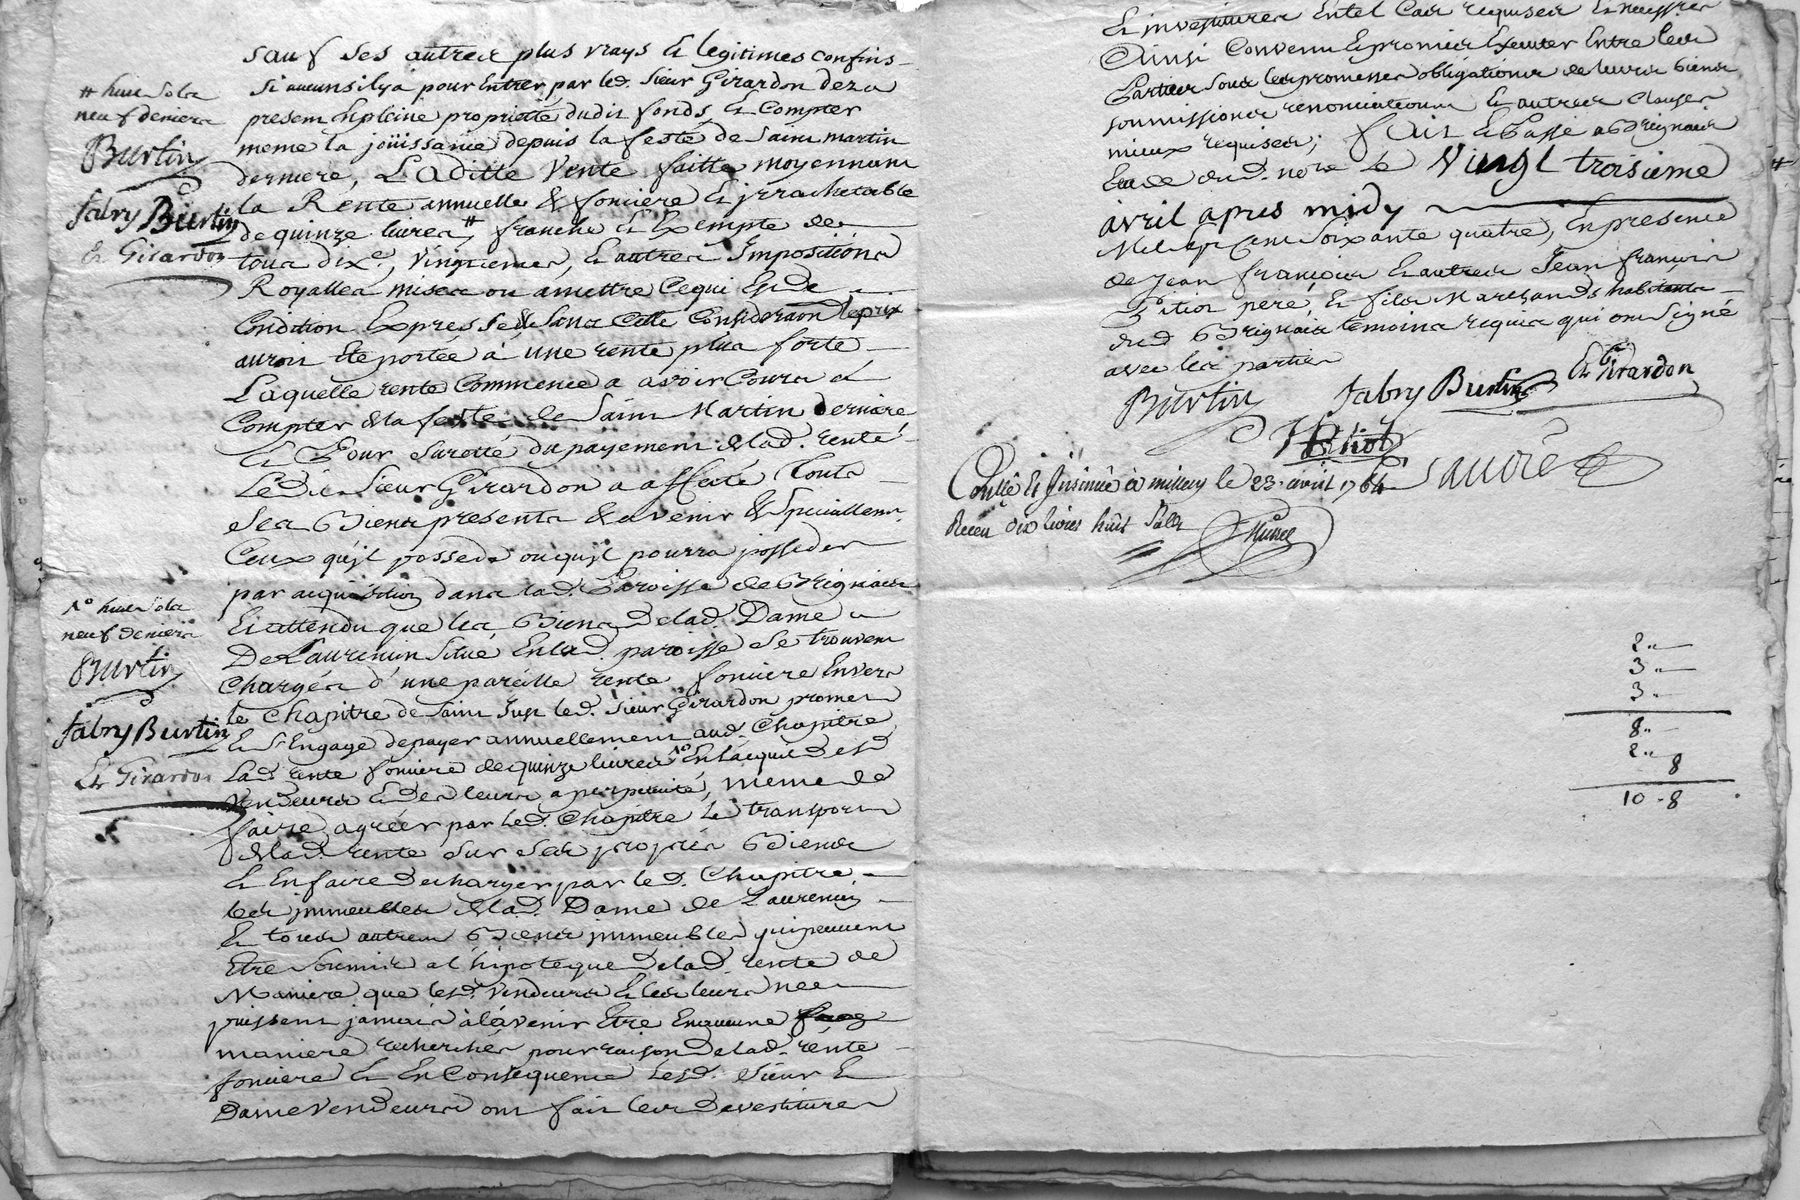 sauf ses autres plus vrays et legitimes confins
si aucuns il y a pour entrer par led. sieur Girardon deza
present en pleine proprieté dudit fonds et compter
meme la joüissance depuis la feste de saint martin
derniere, Laditte vente faitte moyennant
la Rente annuelle & fonciere et jrrachetable
de quinze livres # franche et Exempte de
tous dix.e, vingtiemes, et autres Impositions
Royalles mises ou amettre ce qui Est de
Condition Expresse & sans cette Consideraon le prix
auroit Eté portée à une rente plus forte
Laquelle rente Commence a avoir Cours a
Compter de la feste de saint Martin derniere
Et Pour sureté du payement de lad. rente
Ledit sieur Girardon a affecté touts
ses Biens presents & avenir & specialleme.
Ceux qu'jl possede ou qu'jl pourra posseder
par acquisition dans lad. Paroisse de Brignais
Et attendu que les Biens de lad. Dame
De Laurencin situé En lad. paroisse se trouvent
Chargés d'une pareille rente fonciere Envers
le Chapitre de saint Just led. sieur Girardon promet
Et s'Engage de payer annuellement aud. Chapitre
Lad. rente fonciere de quinze livres N° En l'acquit desd.
vendeurs Et des leurs a perpetuité, meme de
faire agréer par led. Chapitre le transport
de lad. rente sur ses propres Biens
Et En faire decharger par led. Chapitre
les jmmeubles de lad. Dame de Laurencin
Et tous autres Biens jmmeubles qui peuvent
Etre soumis a l'hipoteque de lad. rente de
Maniere que lesd. vendeurs Et les leurs ne
puissent jamais à lavenir Etre En aucune
maniere recherchés pour raison de lad. rente
fonciere Et En Consequence lesd. sieur Et
Dame vendeurs ont fait les devestitures
# huit sols
neuf deniers
Burtin
fabry Burtin
Et Girardon
N° huit sols
neuf deniers
Burtin
fabry Burtin
Et Girardon
Et investitures En tel Cas requises Et necessres
Ainsi Convenu Et promis Executer Entre les
Parties sous les promesses obligations de leurs biens
soumissions renonciations Et autres Clauses
mieux requises; fait Et Passé a Brignais
Etude dud. nore le vingt troisieme
avril apres midy
Mil sept Cent soixante quatre, En presence
de Jean françois Et autre Jean françois
Pitiot pere, Et fils Marchands habitants
dud Brignais temoins requis qui ont signé
avec les parties
Burtin fabry Burtin Et Girardon
Pitiot
Sauvre
Conllé Et Jnsinué à millery le 23 avril 1764
Receu dix livres huit sols
2 "
3 "
3 "
8 "
2 " 8
10 - 8